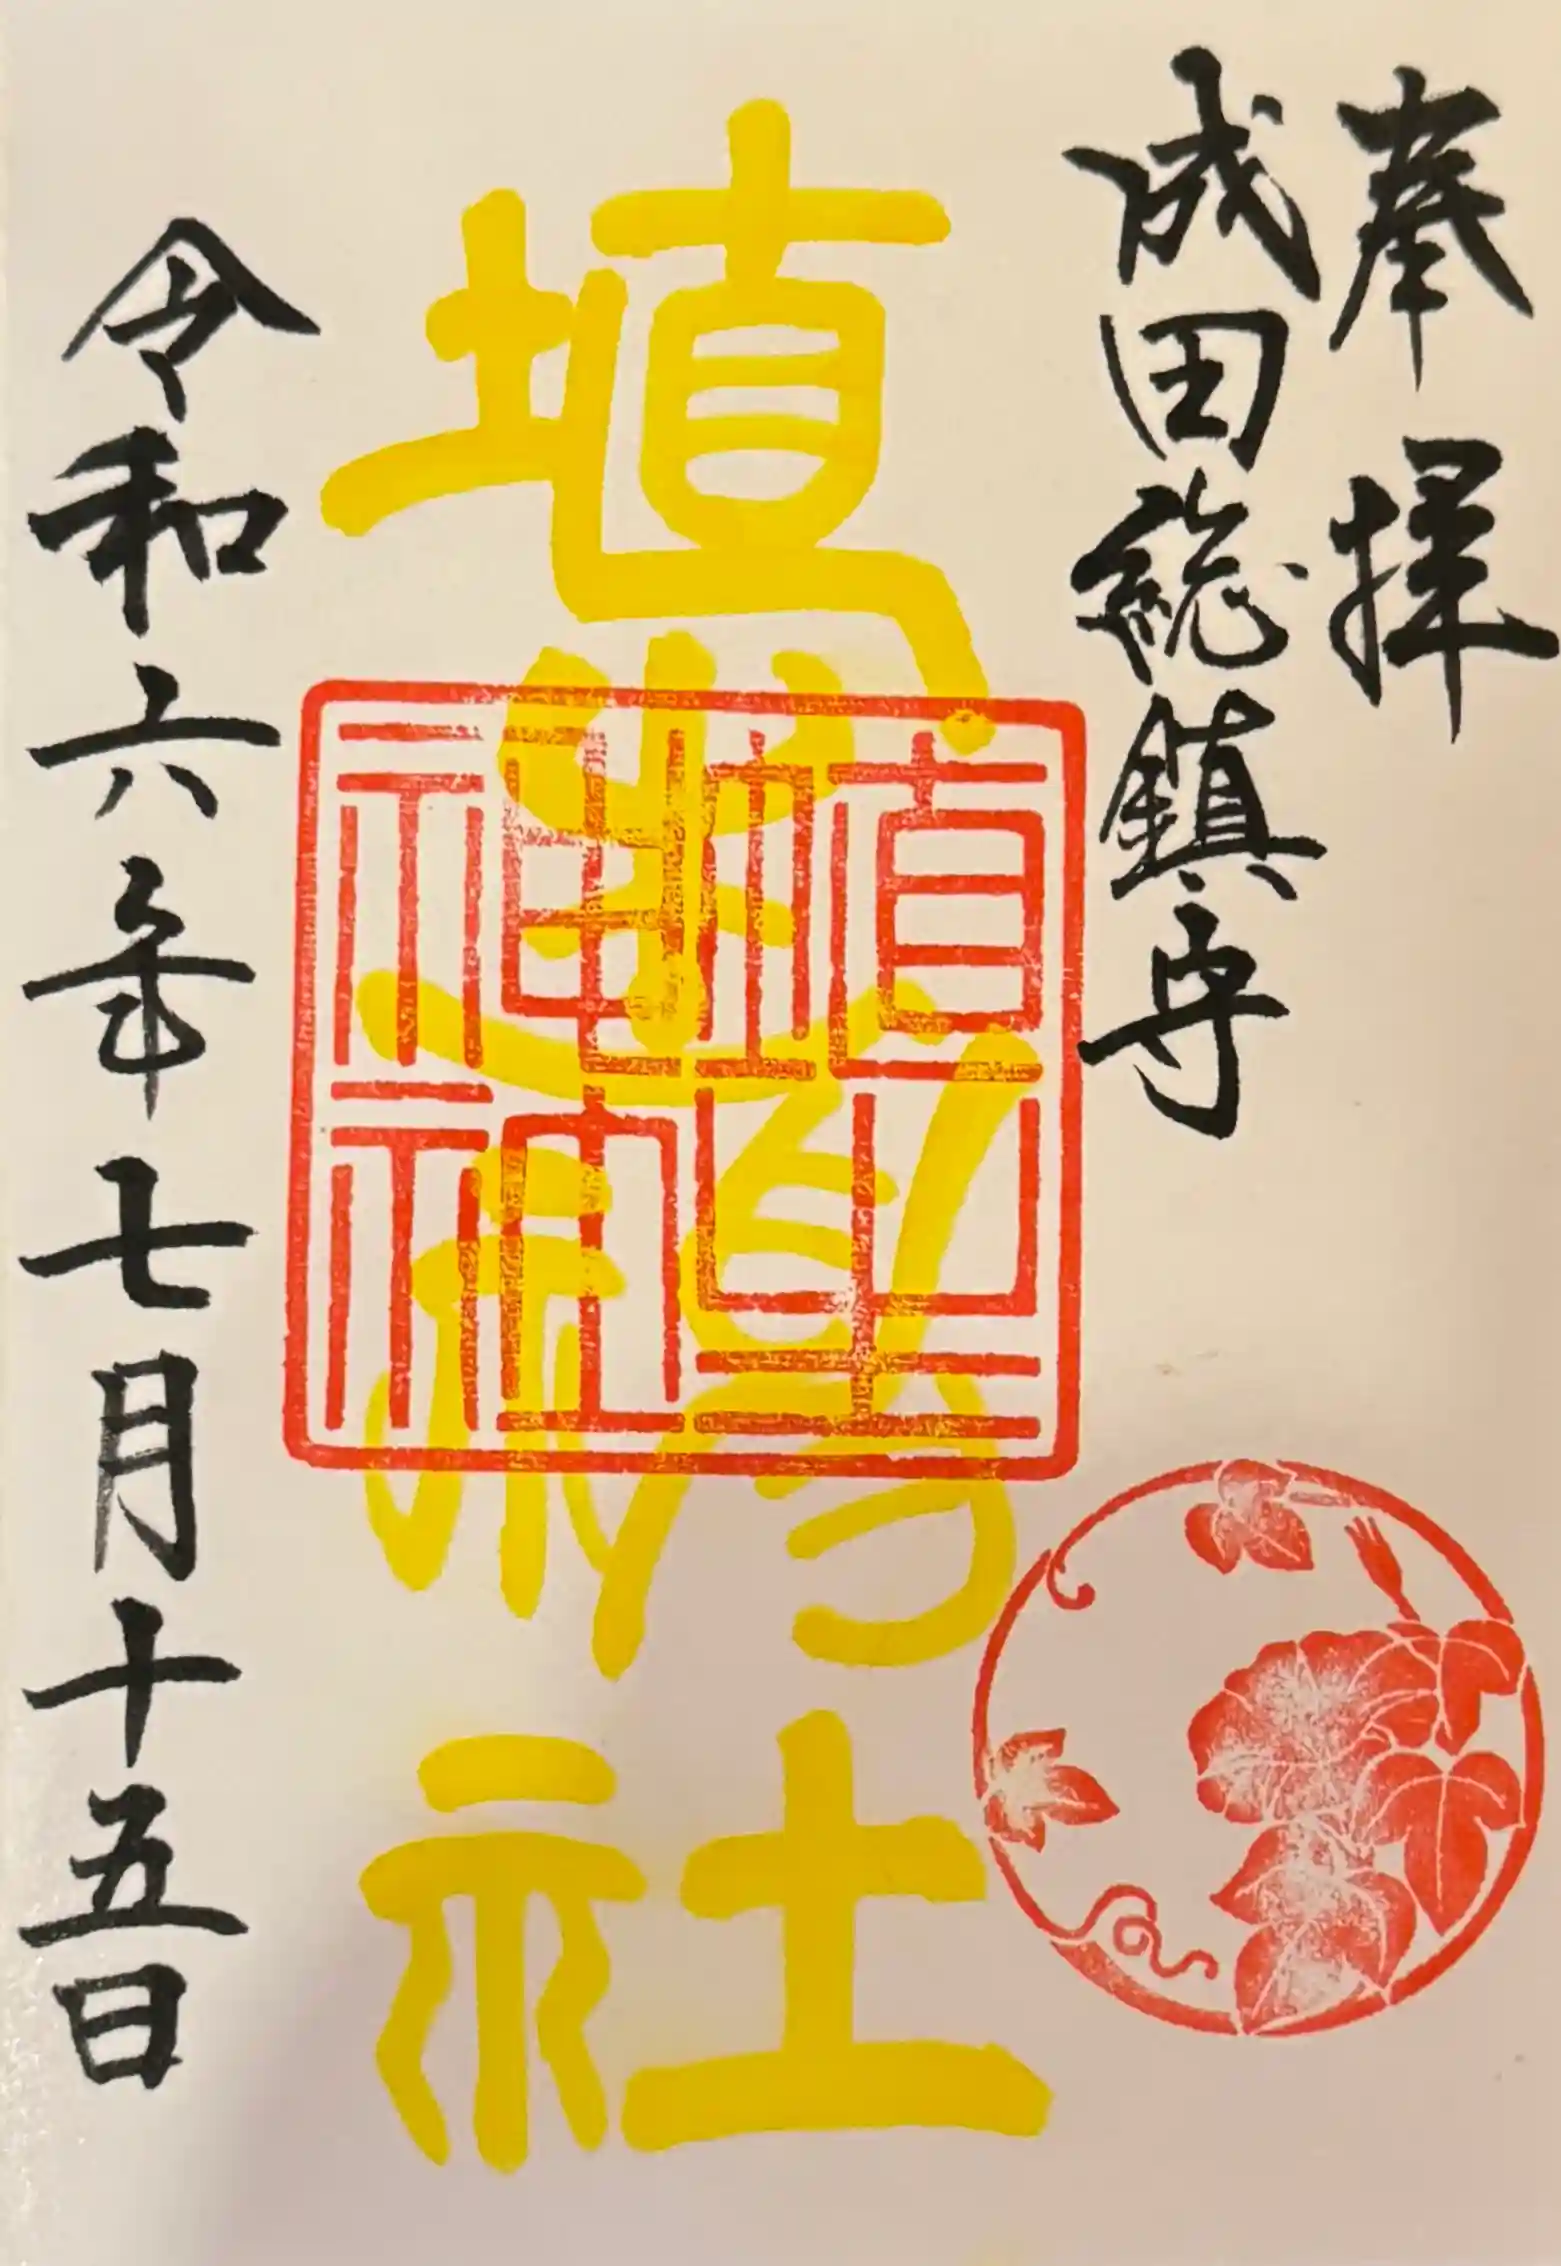 奉拝
成田総鎮守
埴生神社
埴生神社
令和六年七月十五日